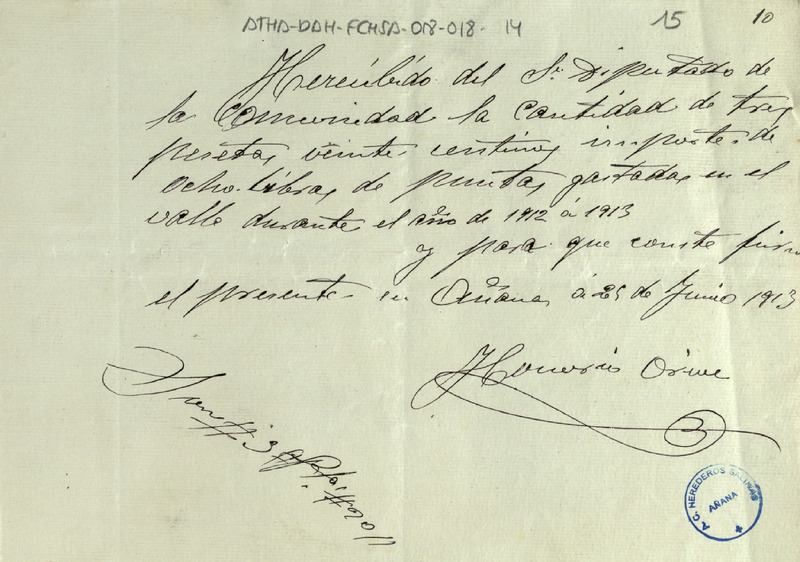 ATHA-DAH-FCHSA-018-018-14
15
10
Hercibido del Sr. Diputado de
la Comunidad la cantidad de tres
pesetas veinte centimos importe de
ocho libras de puntas gastadas en el
valle durante el año de 1912 á 1913
y para que conste firm
el presente en Añana á 25 de Junio 1913
Honorio
A.C. HEREDEROS SALINAS
AÑANA